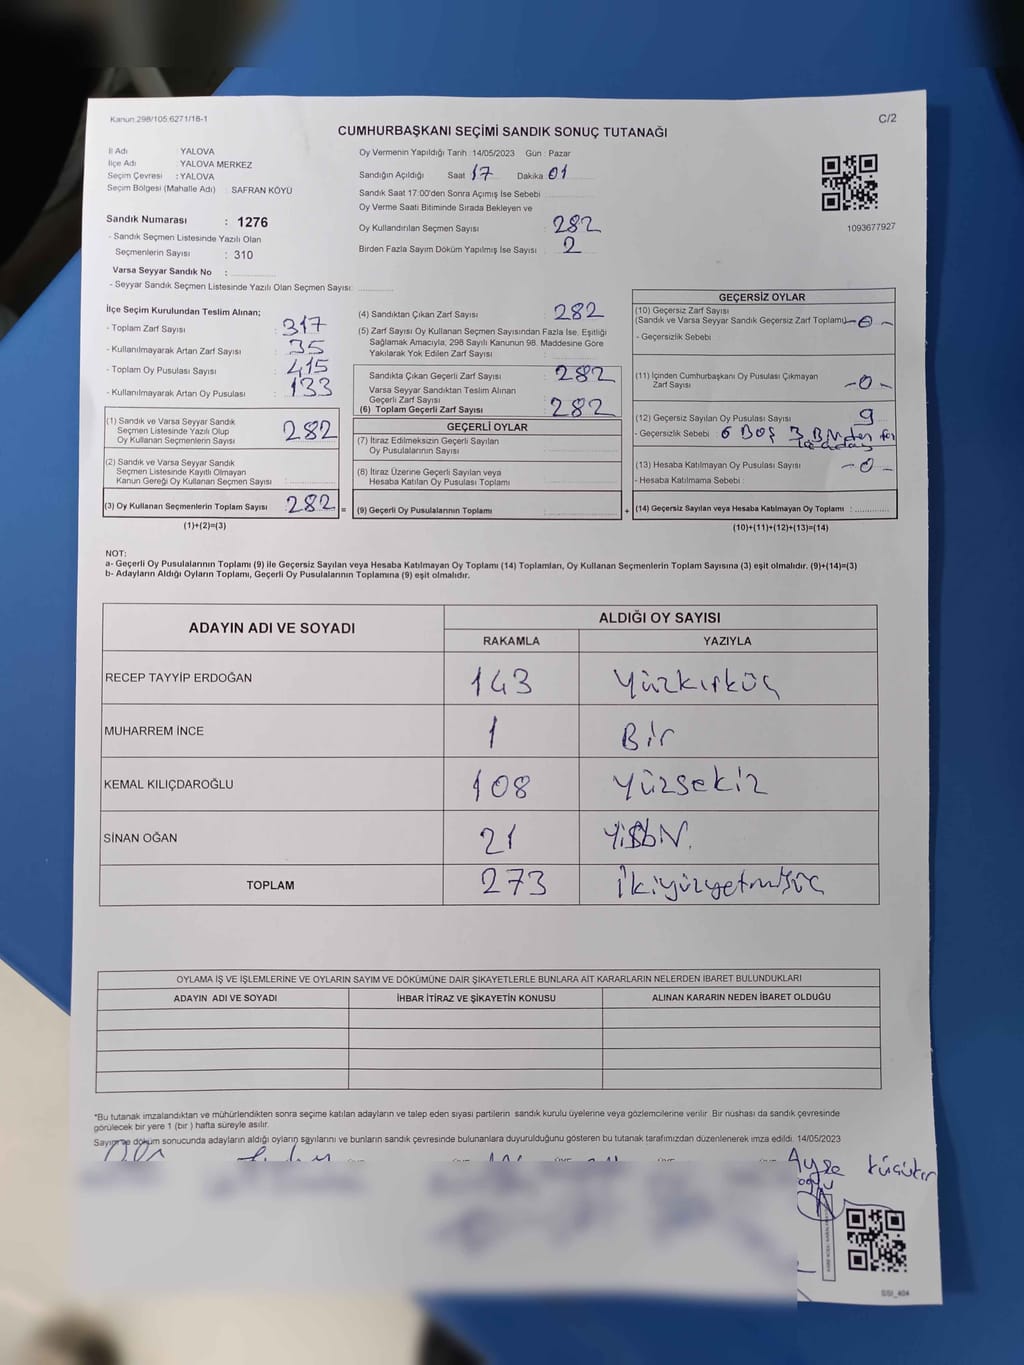 Kanun:298/105;6271/18-1
C/2
CUMHURBAŞKANI SEÇİMİ SANDIK SONUÇ TUTANAĞI
İl Adı : YALOVA
İlçe Adı : YALOVA MERKEZ
Seçim Çevresi : YALOVA
Seçim Bölgesi (Mahalle Adı) : SAFRAN KÖYÜ
Sandık Numarası : 1276
- Sandık Seçmen Listesinde Yazılı Olan
Seçmenlerin Sayısı : 310
Varsa Seyyar Sandık No :
- Seyyar Sandık Seçmen Listesinde Yazılı Olan Seçmen Sayısı:
Oy Vermenin Yapıldığı Tarih :14/05/2023 Gün : Pazar
Sandığın Açıldığı Saat 17 Dakika 01
Sandık Saat 17:00'den Sonra Açımış İse Sebebi
Oy Verme Saati Bitiminde Sırada Bekleyen ve
Oy Kullandırılan Seçmen Sayısı : 282
Birden Fazla Sayım Döküm Yapılmış İse Sayısı : 2
1093677927
İlçe Seçim Kurulundan Teslim Alınan;
- Toplam Zarf Sayısı : 317
- Kullanılmayarak Artan Zarf Sayısı : 35
- Toplam Oy Pusulası Sayısı : 415
- Kullanılmayarak Artan Oy Pusulası : 133
(1) Sandık ve Varsa Seyyar Sandık
Seçmen Listesinde Yazılı Olup
Oy Kullanan Seçmenlerin Sayısı : 282
(2) Sandık ve Varsa Seyyar Sandık
Seçmen Listesinde Kayıtlı Olmayan
Kanun Gereği Oy Kullanan Seçmen Sayısı :
(3) Oy Kullanan Seçmenlerin Toplam Sayısı : 282 =
(1)+(2)=(3)
(4) Sandıktan Çıkan Zarf Sayısı : 282
(5) Zarf Sayısı Oy Kullanan Seçmen Sayısından Fazla İse, Eşitliği
Sağlamak Amacıyla, 298 Sayılı Kanunun 98. Maddesine Göre
Yakılarak Yok Edilen Zarf Sayısı :
Sandıkta Çıkan Geçerli Zarf Sayısı : 282
Varsa Seyyar Sandıktan Teslim Alınan
Geçerli Zarf Sayısı :
(6) Toplam Geçerli Zarf Sayısı : 282
GEÇERLİ OYLAR
(7) İtiraz Edilmeksizin Geçerli Sayılan
Oy Pusulasının Sayısı :
(8) İtiraz Üzerine Geçerli Sayılan veya
Hesaba Katılan Oy Pusulası Toplamı :
(9) Geçerli Oy Pusulalarının Toplamı : +
GEÇERSİZ OYLAR
(10) Geçersiz Zarf Sayısı
(Sandık ve Varsa Seyyar Sandık Geçersiz Zarf Toplamı) -0-
- Geçersizlik Sebebi :
(11) İçinden Cumhurbaşkanı Oy Pusulası Çıkmayan
Zarf Sayısı : -0-
(12) Geçersiz Sayılan Oy Pusulası Sayısı : 9
- Geçersizlik Sebebi : 6 BOŞ 3 Birden fazla
(13) Hesaba Katılmayan Oy Pusulası Sayısı : -0-
- Hesaba Katılmama Sebebi :
(14) Geçersiz Sayılan veya Hesaba Katılmayan Oy Toplamı :
(10)+(11)+(12)+(13)=(14)
NOT:
a- Geçerli Oy Pusulalarının Toplamı (9) ile Geçersiz Sayılan veya Hesaba Katılmayan Oy Toplamı (14) Toplamları, Oy Kullanan Seçmenlerin Toplam Sayısına (3) eşit olmalıdır. (9)+(14)=(3)
b- Adayların Aldığı Oyların Toplamı, Geçerli Oy Pusulalarının Toplamına (9) eşit olmalıdır.
ADAYIN ADI VE SOYADI
ALDIĞI OY SAYISI
RAKAMLA YAZIYLA
RECEP TAYYİP ERDOĞAN 143 Yüzkırküç
MUHARREM İNCE 1 Bir
KEMAL KILIÇDAROĞLU 108 Yüzsekiz
SİNAN OĞAN 21
TOPLAM 273 İkiyüzyetmişüç
OYLAMA İŞ VE İŞLEMLERİNE VE OYLARIN SAYIM VE DÖKÜMÜNE DAİR ŞİKAYETLERLE BUNLARA AİT KARARLARIN NELERDEN İBARET BULUNDUKLARI
ADAYIN ADI VE SOYADI İHBAR İTİRAZ VE ŞİKAYETİN KONUSU ALINAN KARARIN NEDEN İBARET OLDUĞU
*Bu tutanak imzalandıktan ve mühürlendikten sonra seçime katılan adayların ve talep eden siyasi partilerin sandık kurulu üyelerine veya gözlemcilerine verilir. Bir nüshası da sandık çevresinde
görülecek bir yere 1 (bir) hafta süreyle asılır.
Sayım ve döküm sonucunda adayların aldığı oyların sayılarını ve bunların sandık çevresinde bulunanlara duyurulduğunu gösteren bu tutanak tarafımızdan düzenlenerek imza edildi. 14/05/2023
Ayşe
SSI_404